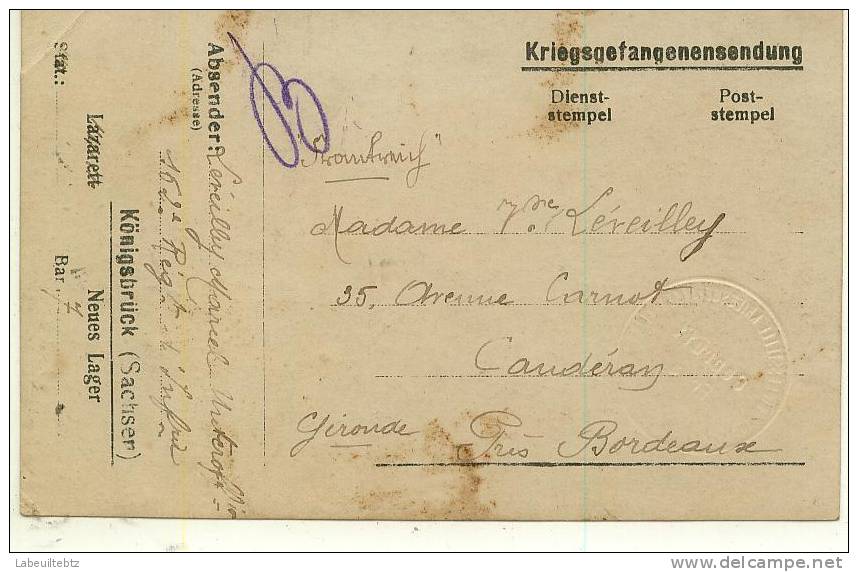 Kriegsgefangenensendung
Dienst-
stempel
Post-
stempel
"Frankreich"
Madame Vve Léveilley
35, Avenue Carnot
Caudéran
Gironde Près Bordeaux
Absender: Léveilley Marcel
(Adresse)
152e Regt
Königsbrück (Sachsen)
Lazarett Neues Lager
Stat.: Bar. 7
Labeuitebtz
delcampe.net